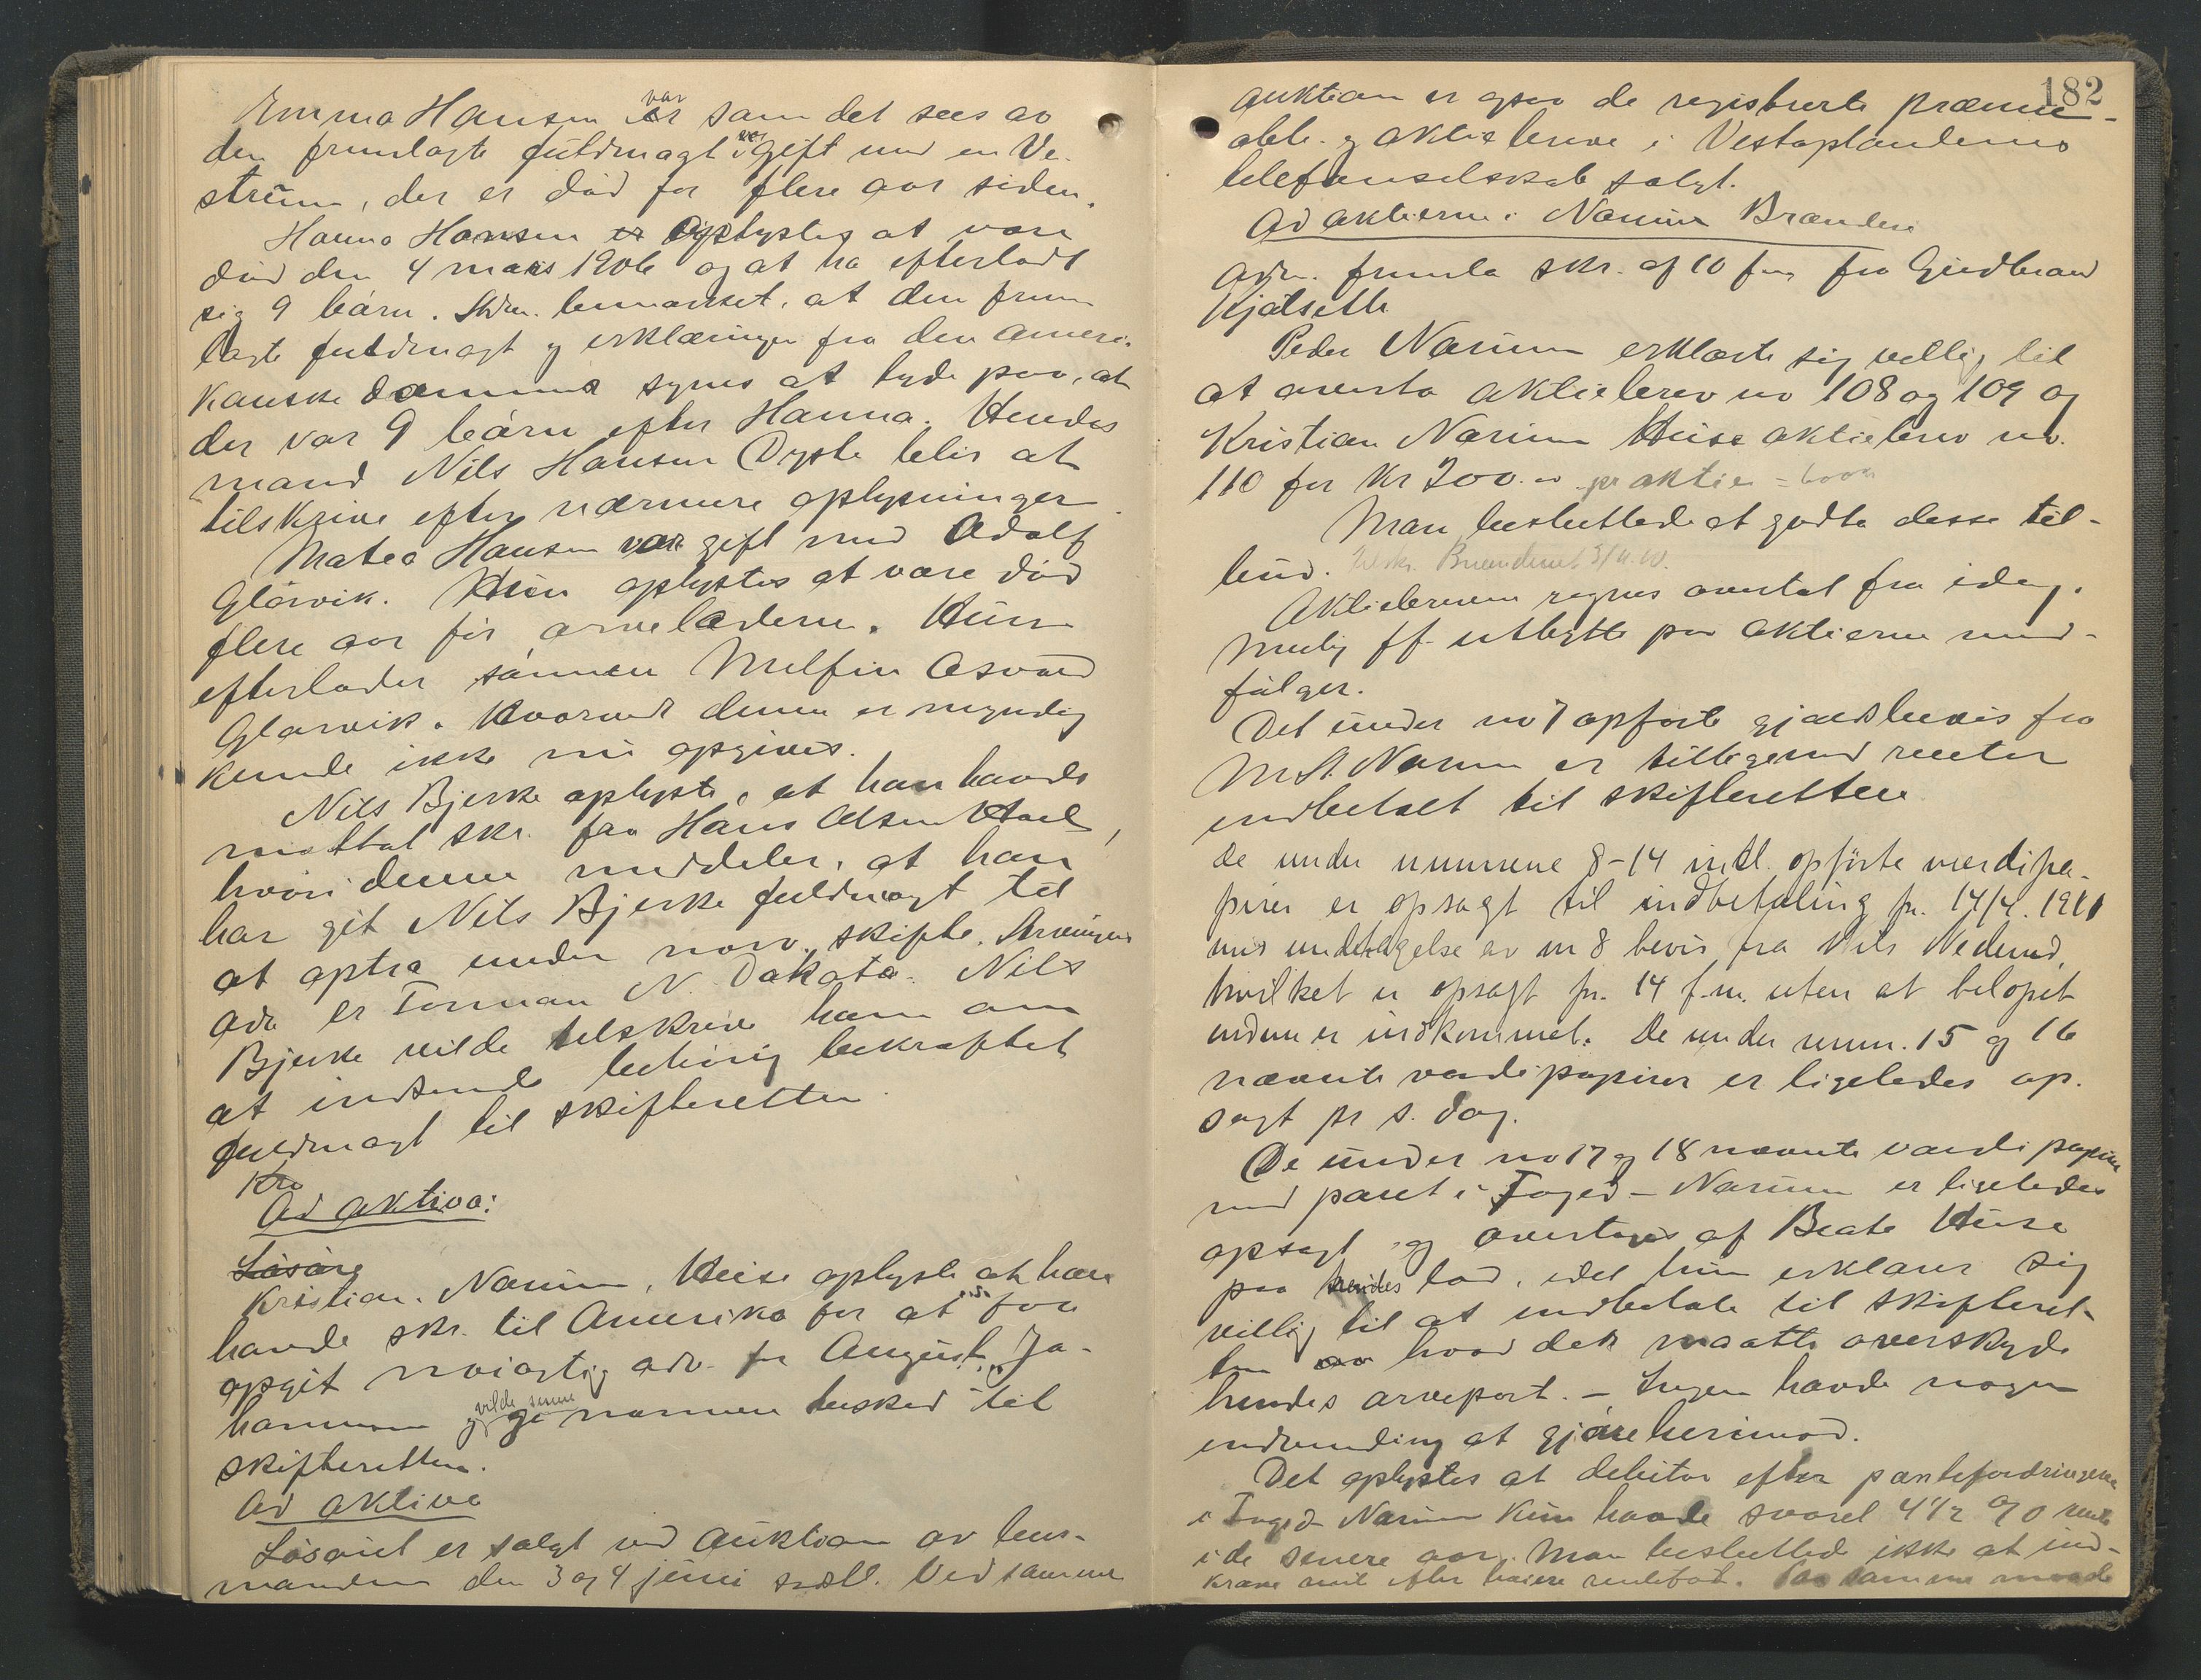 Emma Hansen var som det sees av
den fremlagte fuldmagt gift med en Ve-
strum, der er død for flere aar siden.
Hanna Hansen er oplystes at være
død den 4 mars 1906 og at ha efterladt
sig 9 børn. Adm. bemærket, at den frem
lagte fuldmagt og erklæringer fra den ameri-
kanske dommer synes at tyde paa, at
der var 9 børn efter Hanna. Hendes
mand Nils Hansen Dyste blir at
tilskrive efter nærmere oplysninger.
Matea Hansen var gift med Adolf
Glørvik. Hun oplystes at være død
flere aar før arveladeren. Hun
efterlader sønnen Melfin Osvald
Glørvik. Hvorvidt denne er myndig
kunde ikke nu opgives.
Nils Bjerke oplyste, at han havde
mottat skr. fra Hans Olsen
hvori denne meddeler, at han
har git Nils Bjerke fuldmagt til
at optræ under nærv. skifte. Arvingens
adr er Forman N. Dakota. Nils
Bjerke vilde tilskrive ham om
at indsende behørig bekræftet
fuldmagt til skifteretten.
Kra
Ad aktiva:
Løsøre
Kristian Narum, Huse oplyste at han
havde skr. til Amerika for at faa
opgit nøiagtig adr. for August Jo-
hannesen og vilde senere gi nærmere besked til
skifteretten.
Ad aktiva
Løsøret er solgt ved auktion av lens-
manden den 3 og 4 juni sidstl. Ved samme
182
auktion er ogsaa de registrerte præmie-
obli. og aktiebreve i Vestoplandenes
telefonselskab solgt.
Ad aktierne i Narum Brænderi
Adm. fremla skr. af 10 ds. fra Gudbrand
Kjølseth
Peder Narum erklærte sig villig til
at overta aktiebrev no 108 og 109 og
Kristian Narum Huse aktiebrev no.
110 for Kr 200.- pr aktie =
Man besluttede at godta disse til-
bud. Brænderiet
Aktiebrevene regnes overtat fra idag.
Mulig ff. utbytte paa aktierne med-
følger.
Det under no 7 opførte gjældsbevis fra
M. A. Narum er tilligemed renter
indbetalt til skifteretten
de under numrene 8-14 inkl. opførte værdipa-
pirer er opsagt til indbetaling pr. 14/4. 1911
med undtagelse av nr 8 bevis fra Nils Nederud,
hvilket er opsagt pr. 14 f.m. uten at beløpet
endnu er indkommet. De under num. 15 og 16
nævnte værdipapirer er ligeledes op-
sagt pr s. dag.
De under no 17 og 18 nævnte værdipapirer
med pant i Foged-Narum er ligeledes
opsagt og overtages af Beate Huse
paa hendes lod, idet hun erklærer sig
villig til at indbetale til skifteret-
ten hvad det maatte overskyde
hendes arvepart. - Ingen havde nogen
indvending at gjøre herimod.
Det oplystes at debitor efter pantefordringene
i Foged-Narum kun havde svaret 4 1/2 % rente
i de senere aar. Man besluttede ikke at ind-
kræve avil efter høiere rentefot. Paa samme maade